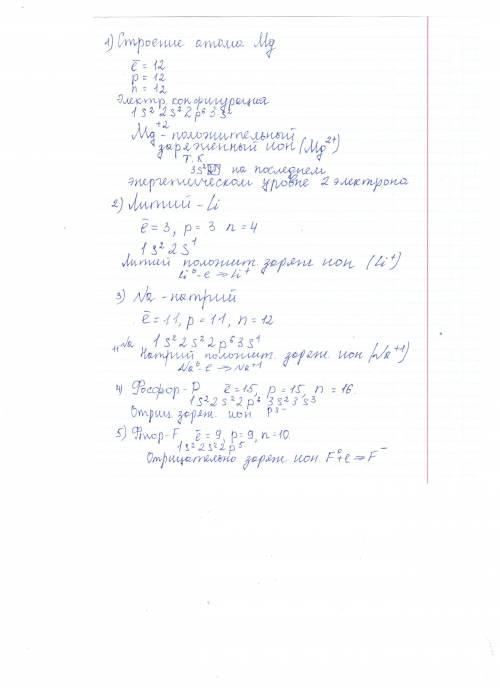 1) Строение атома Mg
ē = 12
p = 12
n = 12
Электр. конфигурация
1s² 2s² 2p⁶ 3s²
Mg⁺² - положительный
заряженный ион (Mg²⁺)
т.к
3s² на последнем
энергетическом уровне 2 электрона
2) Литий - Li
ē = 3, p = 3 n = 4
1s² 2s¹
Литий положит. заряж ион (Li⁺)
Li⁰ - e ⇒ Li⁺
3) Na - натрий
ē = 11, p = 11, n = 12
₁₁Na 1s² 2s² 2p⁶ 3s¹
Натрий положит. заряж. ион (Na⁺¹)
Na⁰ - e ⇒ Na⁺¹
4) Фосфор - P ē = 15, p = 15, n = 16.
1s² 2s² 2p⁶ 3s² 3s³
Отриц. заряж. ион P³⁻
5) Фтор - F ē = 9, p = 9, n = 10.
1s² 2s² 2p⁵
Отрицательно заряж ион F⁰ + e ⇒ F⁻